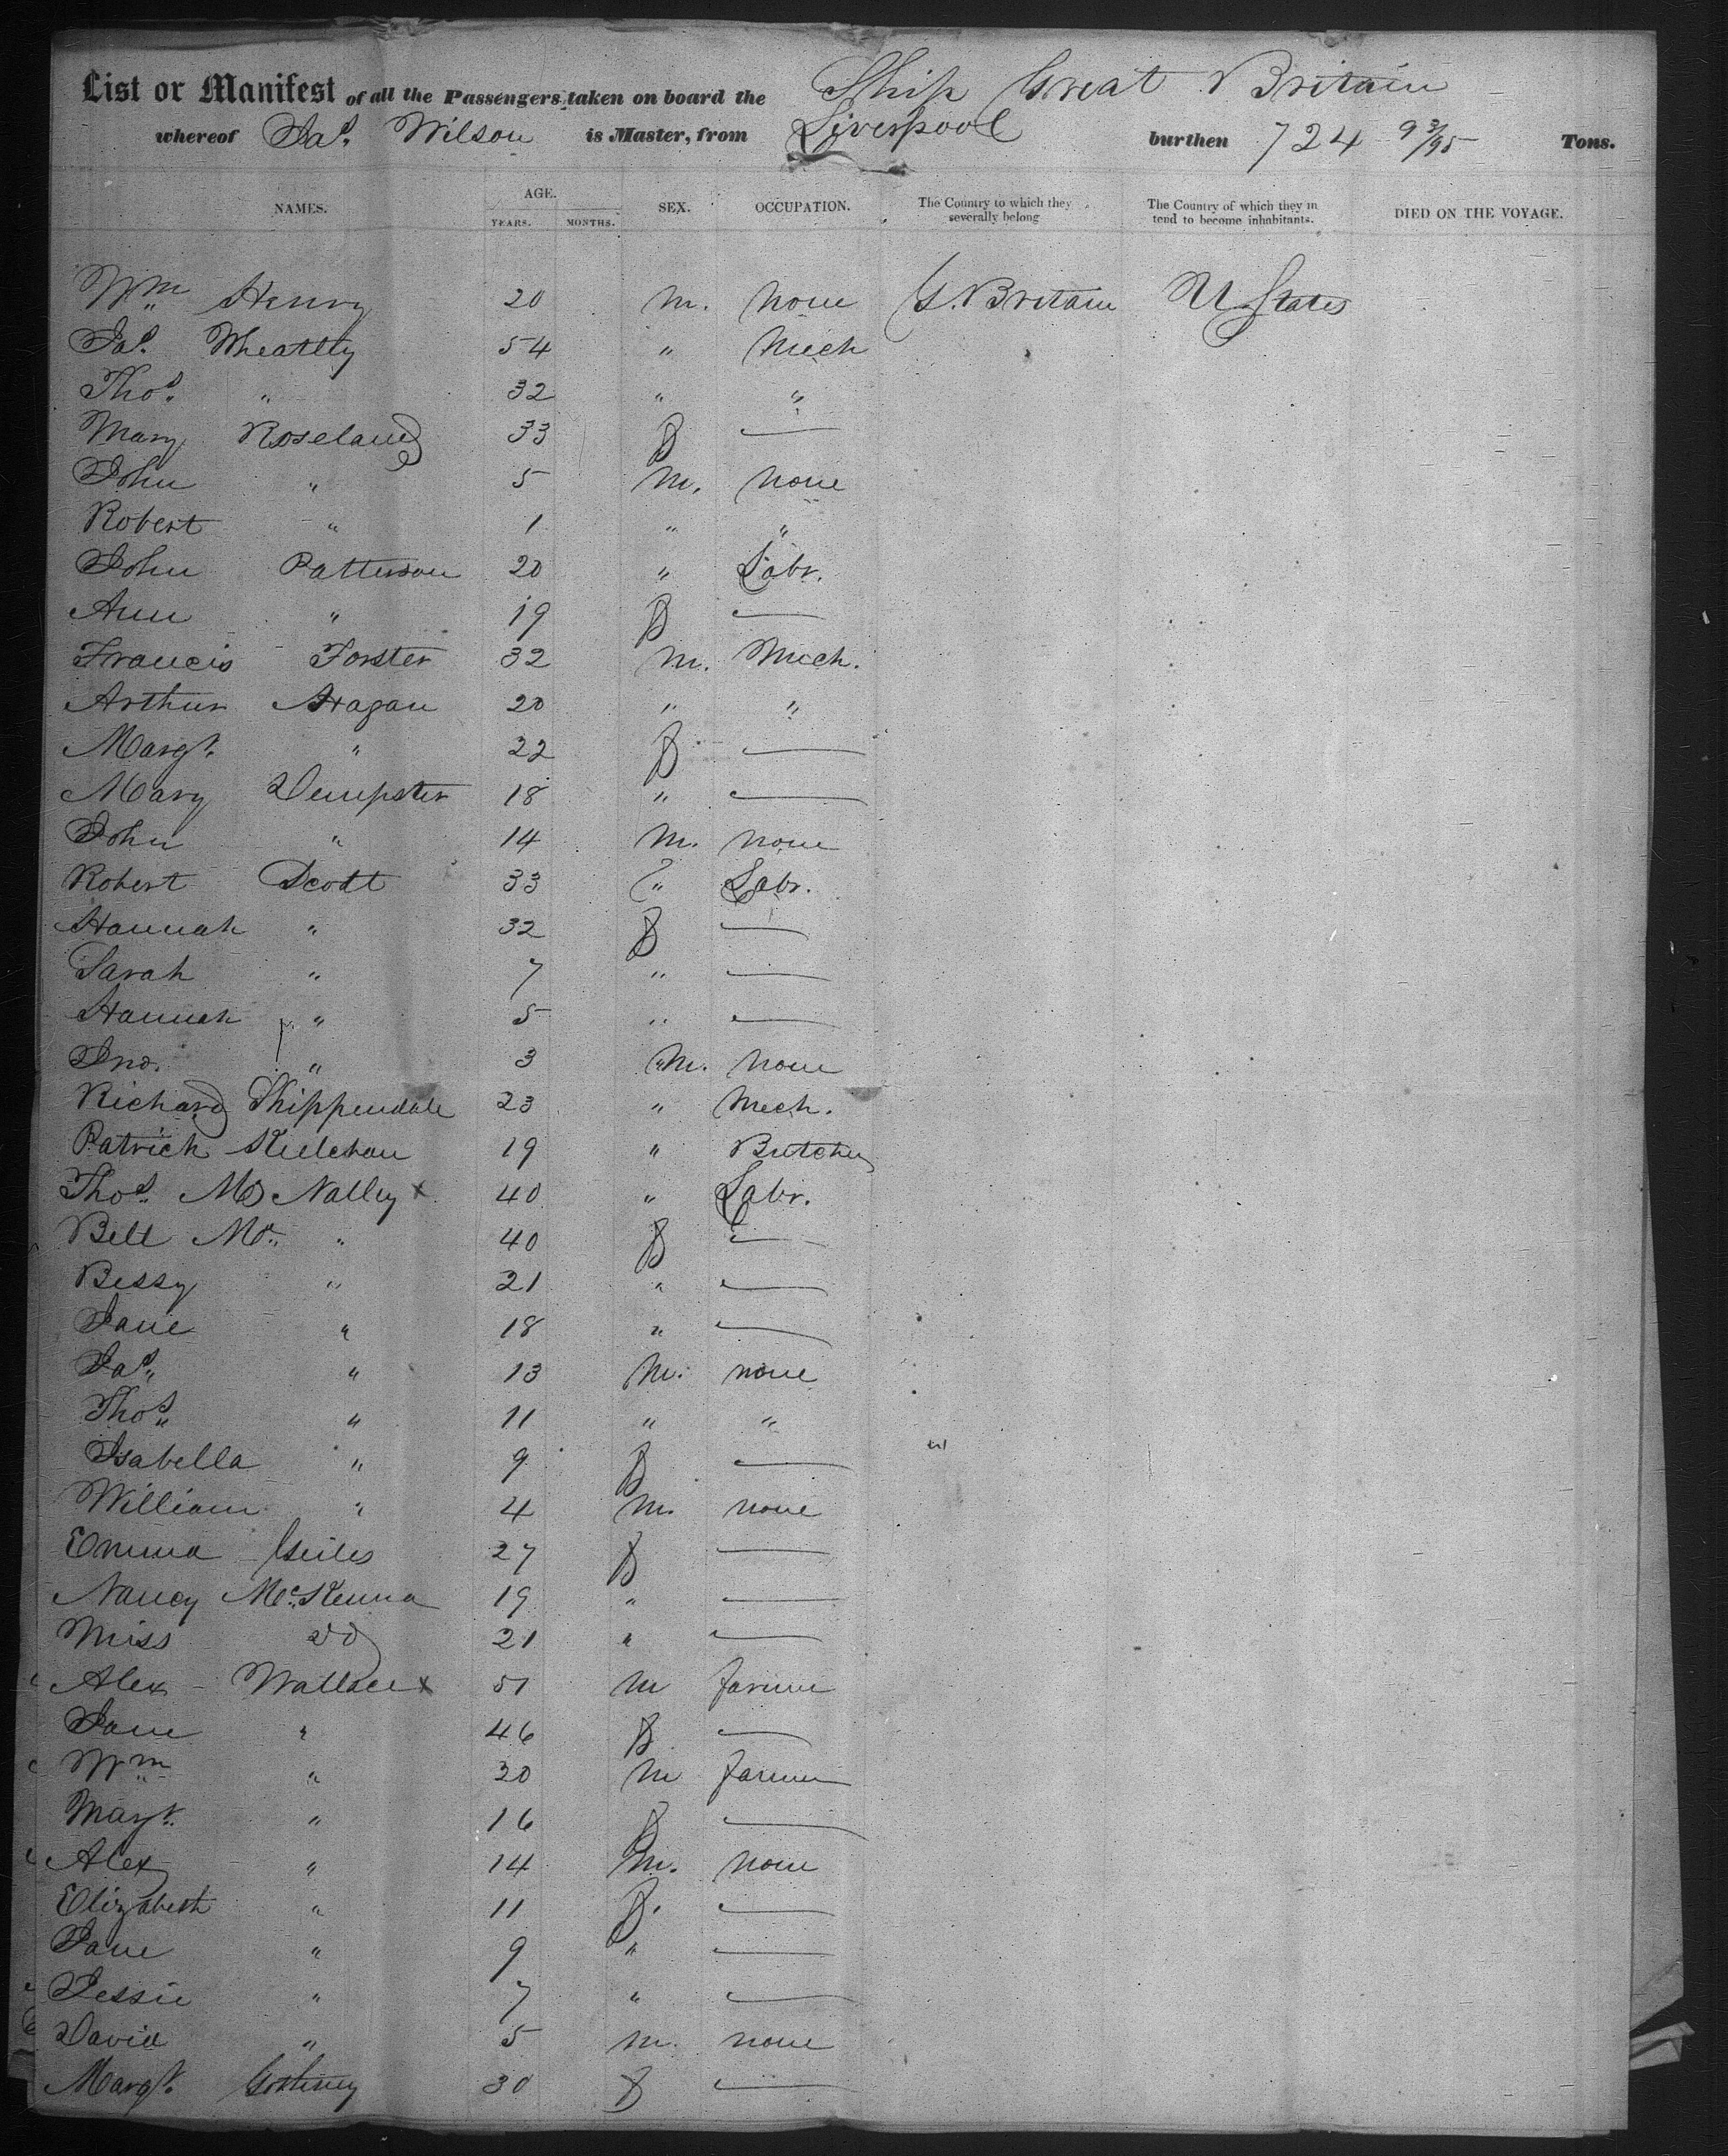 List or Manifest of all the Passengers taken on board the Ship Great Britain
whereof Jas. Wilson is Master, from Liverpool burthen 724 93/95 Tons.
NAMES. AGE. YEARS. MONTHS. SEX. OCCUPATION. The Country to which they severally belong The Country of which they in tend to become inhabitants. DIED ON THE VOYAGE.
Wm Henry 20 m. none G. Britain U States
Jas. Wheatley 54 " Mech
Thos. " 32 " "
Mary Roseland 33 f —
John " 5 m. none
Robert " 1 " "
John Patterson 20 " Labr.
Ann " 19 f —
Francis Forster 32 m. Mech.
Arthur Hagan 20 " "
Margt. " 22 f —
Mary Dempster 18 " —
John " 14 m. none
Robert Scott 33 " Labr.
Hannah " 32 f —
Sarah " 7 " —
Hannah " 5 " —
Jno. " 3 "m. none
Richard Shippendale 23 " Mech.
Patrick 19 " Butcher
Thos. Mc Nalley x 40 " Labr.
Bell Mc. " 40 f —
Bessy " 21 " —
Jane " 18 " —
Jas. " 13 m. none
Thos. " 11 " "
Isabella " 9 f —
William " 4 m. none
Emma Geiles 27 f —
Nancy McKenna 19 " —
Miss do 21 " —
Alex - Wallace x 51 m farmer
Jane " 46 f —
Wm " 20 m farmer
Margt. " 16 f —
Alex " 14 m. none
Elizabeth " 11 f. —
Jane " 9 " —
Jessie " 7 " —
David " 5 m. none
Margt. 30 f —